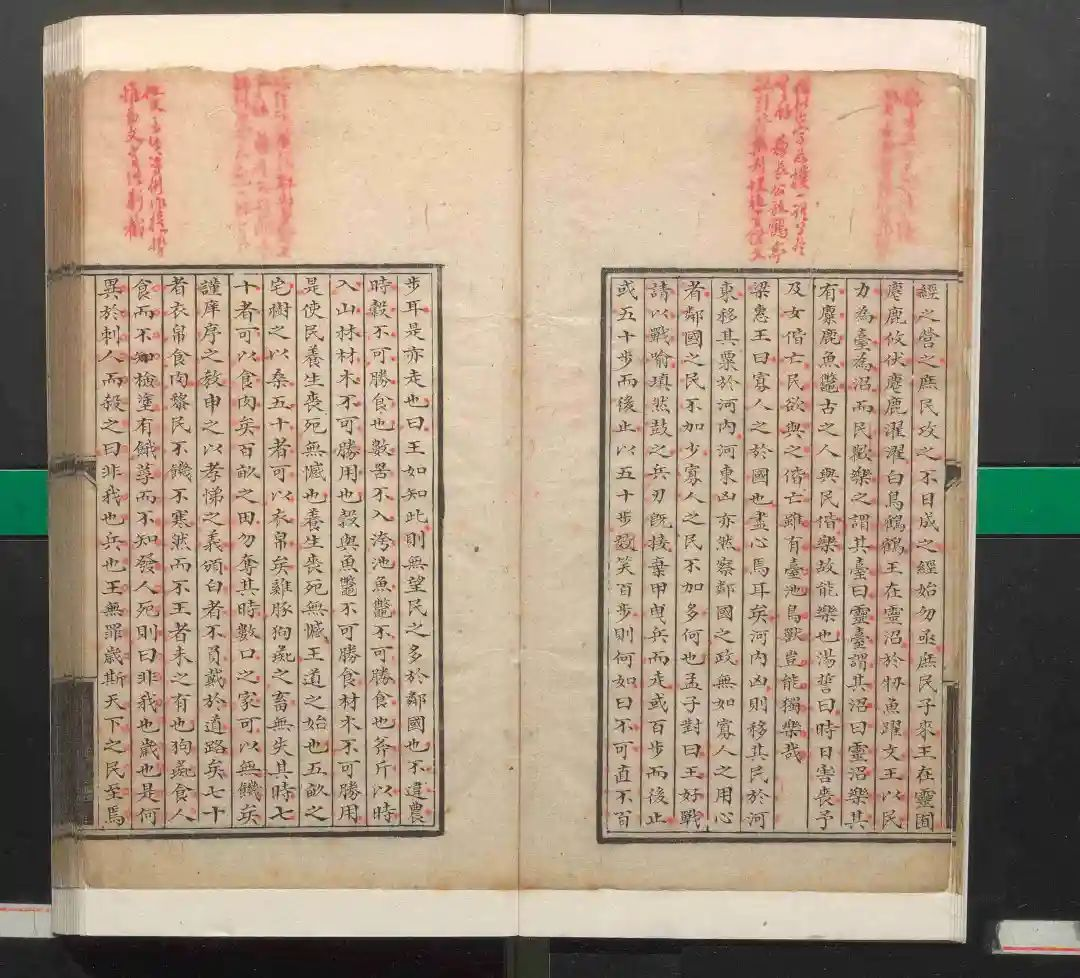 經之營之庶民攻之不日成之經始勿亟庶民子來王在靈囿
麀鹿攸伏麀鹿濯濯白鳥鶴鶴王在靈沼於牣魚躍文王以民
力為臺為沼而民歡樂之謂其臺曰靈臺謂其沼曰靈沼樂其
有麋鹿魚鼈古之人與民偕樂故能樂也湯誓曰時日害喪予
及女偕亡民欲與之偕亡雖有臺池鳥獸豈能獨樂哉
梁惠王曰寡人之於國也盡心焉耳矣河內凶則移其民於河
東移其粟於河內河東凶亦然察鄰國之政無如寡人之用心
者鄰國之民不加少寡人之民不加多何也孟子對曰王好戰
請以戰喻填然鼓之兵刃既接棄甲曳兵而走或百步而後止
或五十步而後止以五十步笑百步則何如曰不可直不百
步耳是亦走也曰王如知此則無望民之多於鄰國也不違農
時穀不可勝食也數罟不入洿池魚鼈不可勝食也斧斤以時
入山林材木不可勝用也穀與魚鼈不可勝食材木不可勝用
是使民養生喪死無憾也養生喪死無憾王道之始也五畝之
宅樹之以桑五十者可以衣帛矣雞豚狗彘之畜無失其時七
十者可以食肉矣百畝之田勿奪其時數口之家可以無饑矣
謹庠序之教申之以孝悌之義頒白者不負戴於道路矣七十
者衣帛食肉黎民不饑不寒然而不王者未之有也狗彘食人
食而不知檢塗有餓莩而不知發人死則曰非我也歲也是何
異於刺人而殺之曰非我也兵也王無罪歲斯天下之民至焉